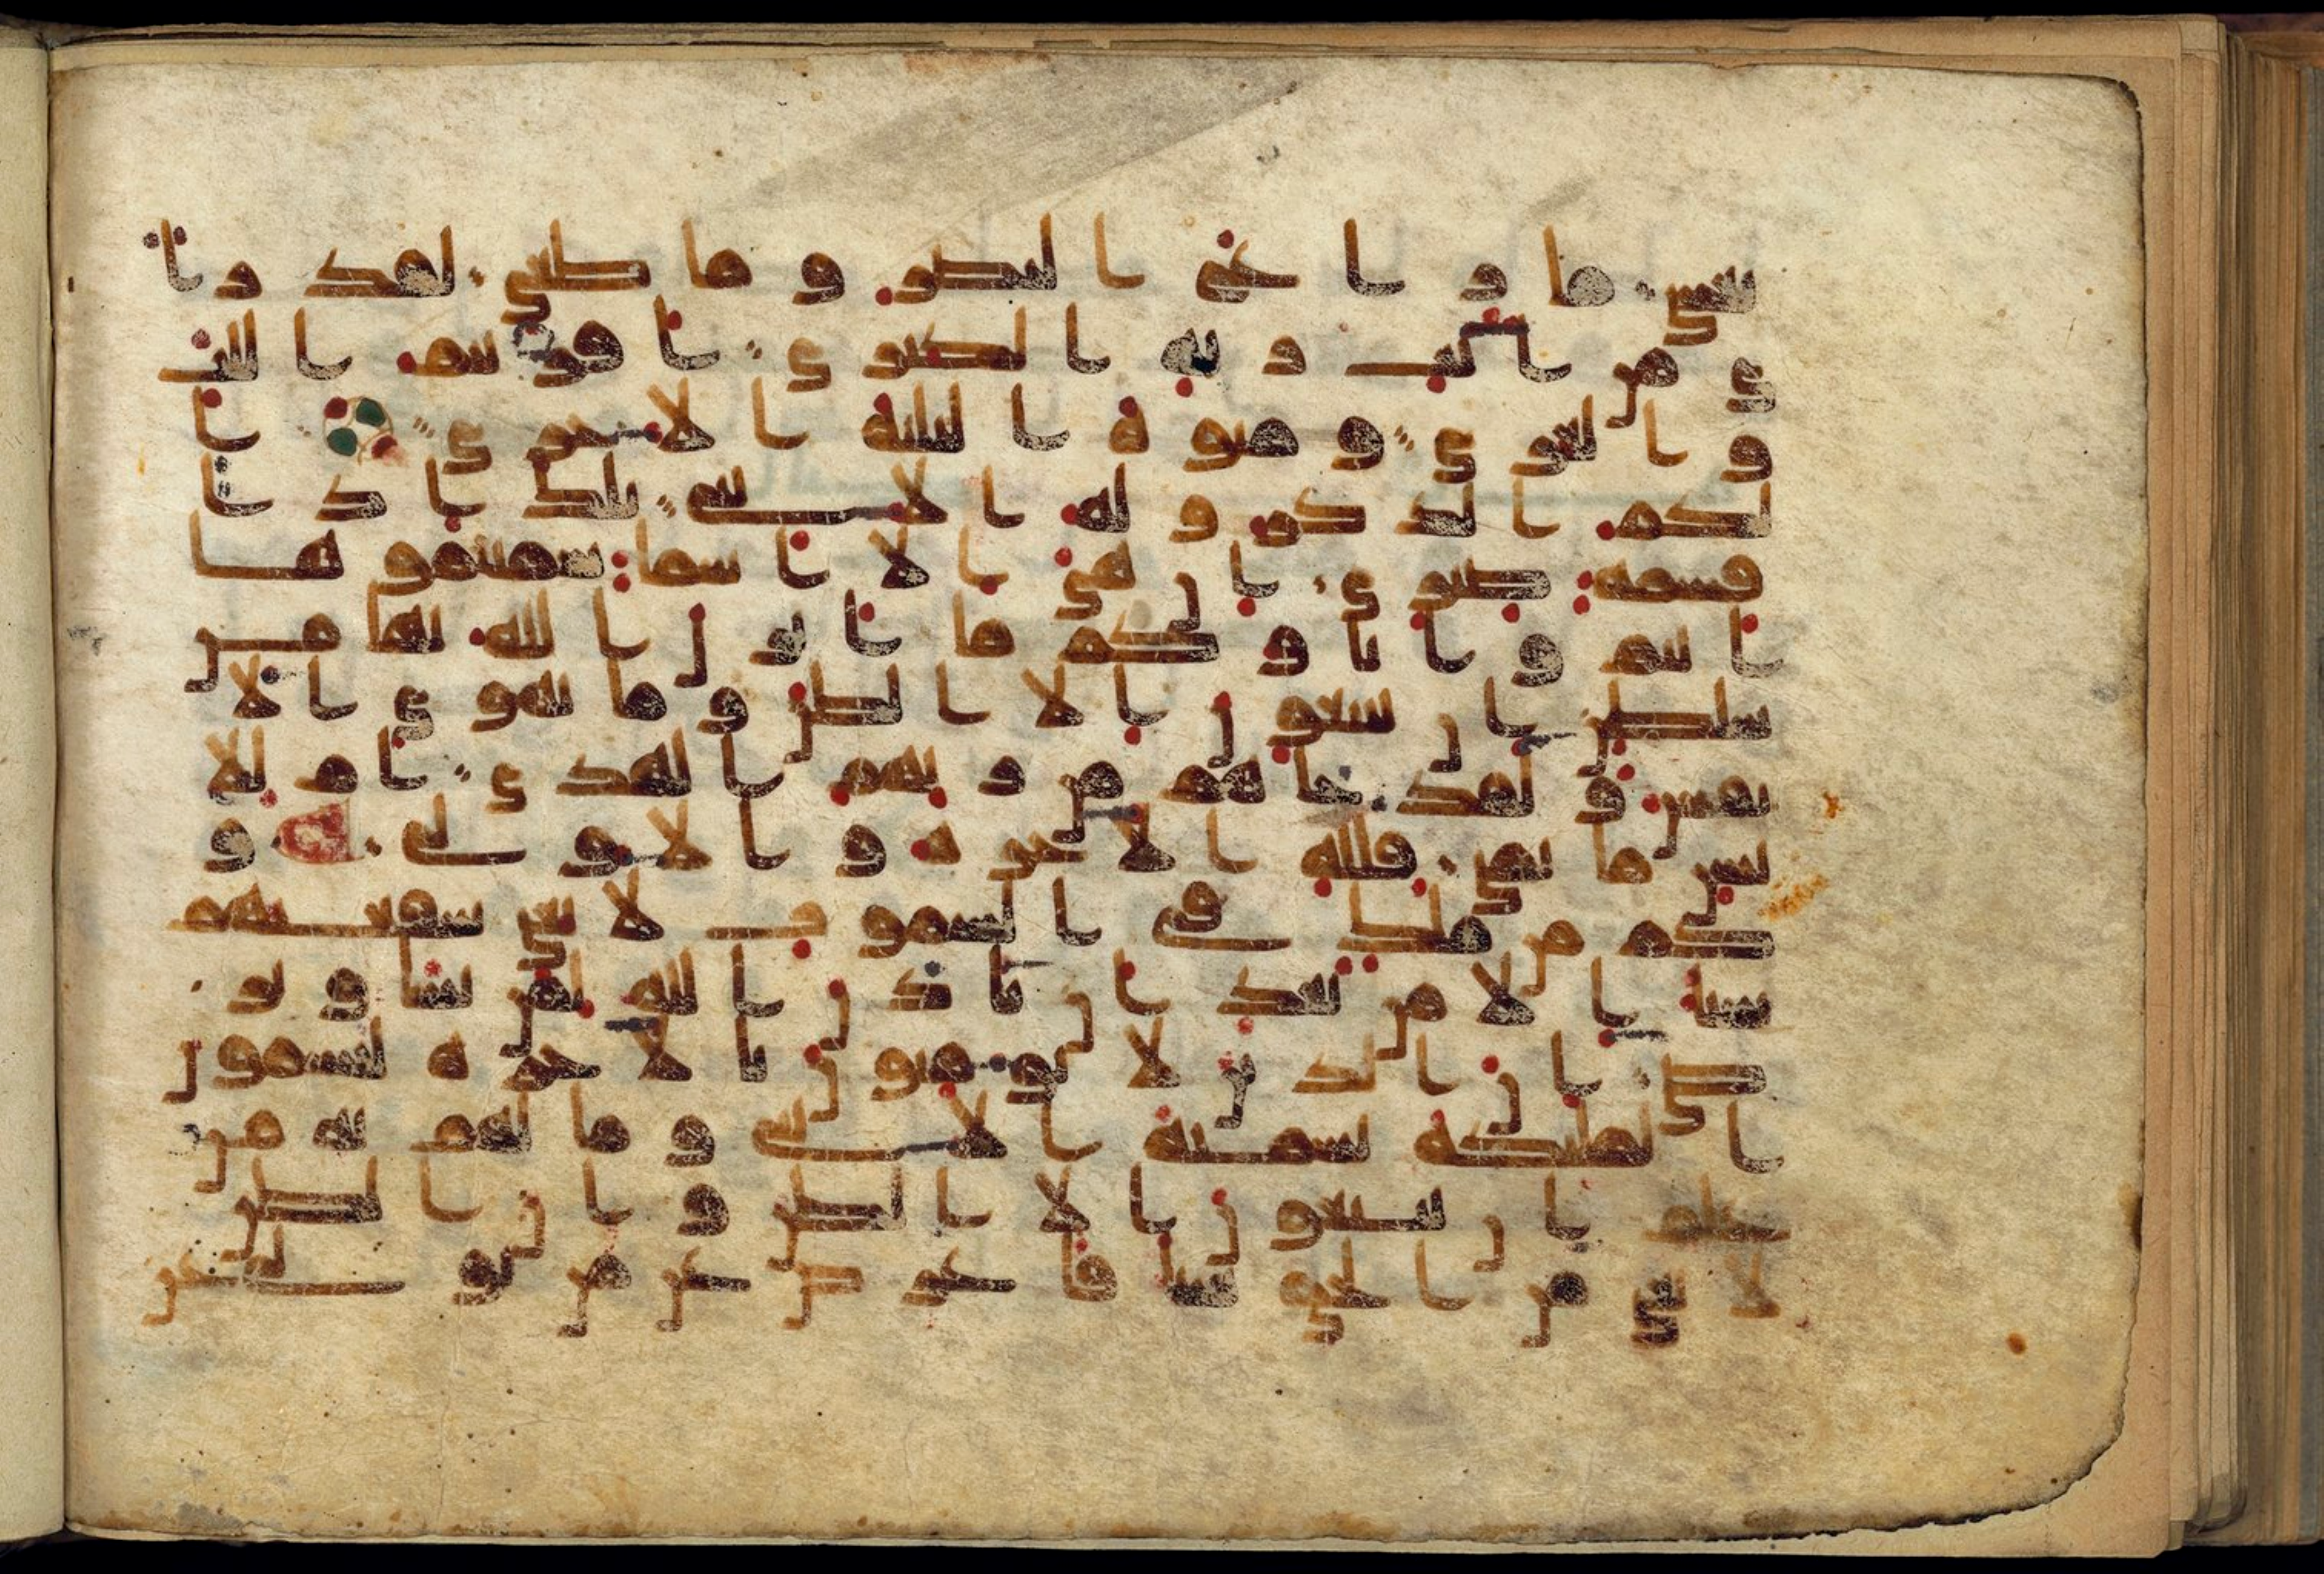 يغشى ما زاغ البصر و ما طغى لقد را
ى من ايت ربه الكبرى افريتم اللت
و العزى و منوة الثلثة الاخرى ا
لكم الذكر و له الانثى تلك اذا
قسمة ضيزى ان هى الا اسما سميتموها
انتم و اباوكم ما انزل الله بها من
سلطن ان يتبعون الا الظن و ما تهوى الا
نفس و لقد جاهم من ربهم الهدى ام للا
نسن ما تمنى فلله الاخرة و الاولى و
كم من ملك فى السموت لا تغنى شفعتهم
شيا الا من بعد ان ياذن الله لمن يشا و ير
ضى ان الذين لا يومنون بالاخرة ليسمون
الملئكة تسمية الانثى و ما لهم به من
علم ان يتبعون الا الظن و ان الظن
لا يغنى من الحق شيا فاعرض عن من تولى عن